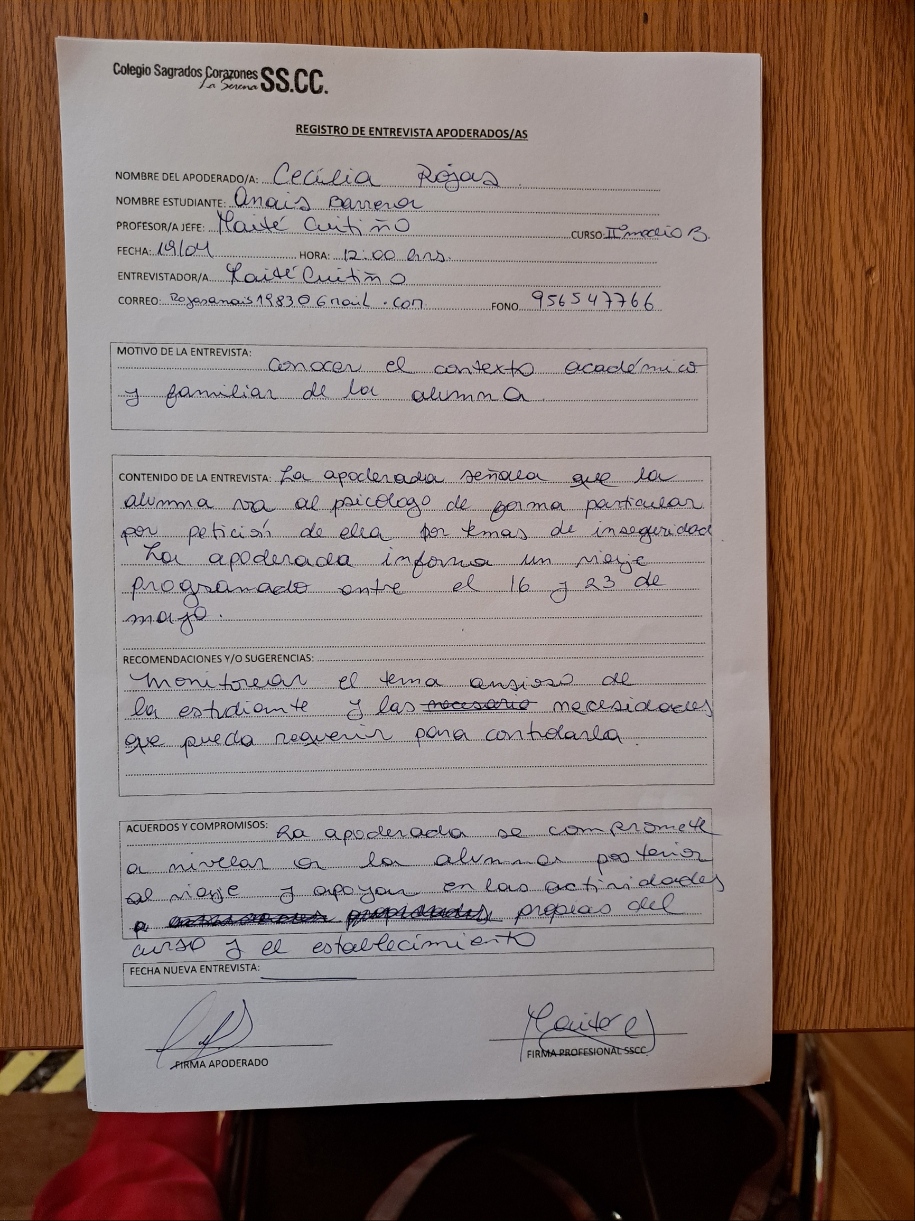 Colegio Sagrados Corazones SS.CC.
La Serena
REGISTRO DE ENTREVISTA APODERADOS/AS
NOMBRE DEL APODERADO/A: Cecilia Rojas
NOMBRE ESTUDIANTE: Anais Barrera
PROFESOR/A JEFE: Maité Cuitiño CURSO: II° medio B.
FECHA: 19/04 HORA: 12:00 hrs.
ENTREVISTADOR/A Maité Cuitiño
CORREO: Rojasanais1983@Gmail.com FONO 956547766
MOTIVO DE LA ENTREVISTA:
Conocer el contexto académico
y familiar de la alumna
CONTENIDO DE LA ENTREVISTA: La apoderada señala que la
alumna va al psicólogo de forma particular
por petición de ella por temas de inseguridad
La apoderada informa un viaje
programado entre el 16 y 23 de
mayo.
RECOMENDACIONES Y/O SUGERENCIAS:
Monitorear el tema ansioso de
la estudiante y las necesario necesidades
que pueda requerir para controlarla
ACUERDOS Y COMPROMISOS: La apoderada se compromete
a nivelar a la alumna posterior
al viaje y apoyar en las actividades
propias del
curso y el establecimiento
FECHA NUEVA ENTREVISTA:
Maite C
FIRMA APODERADO FIRMA PROFESIONAL SSCC